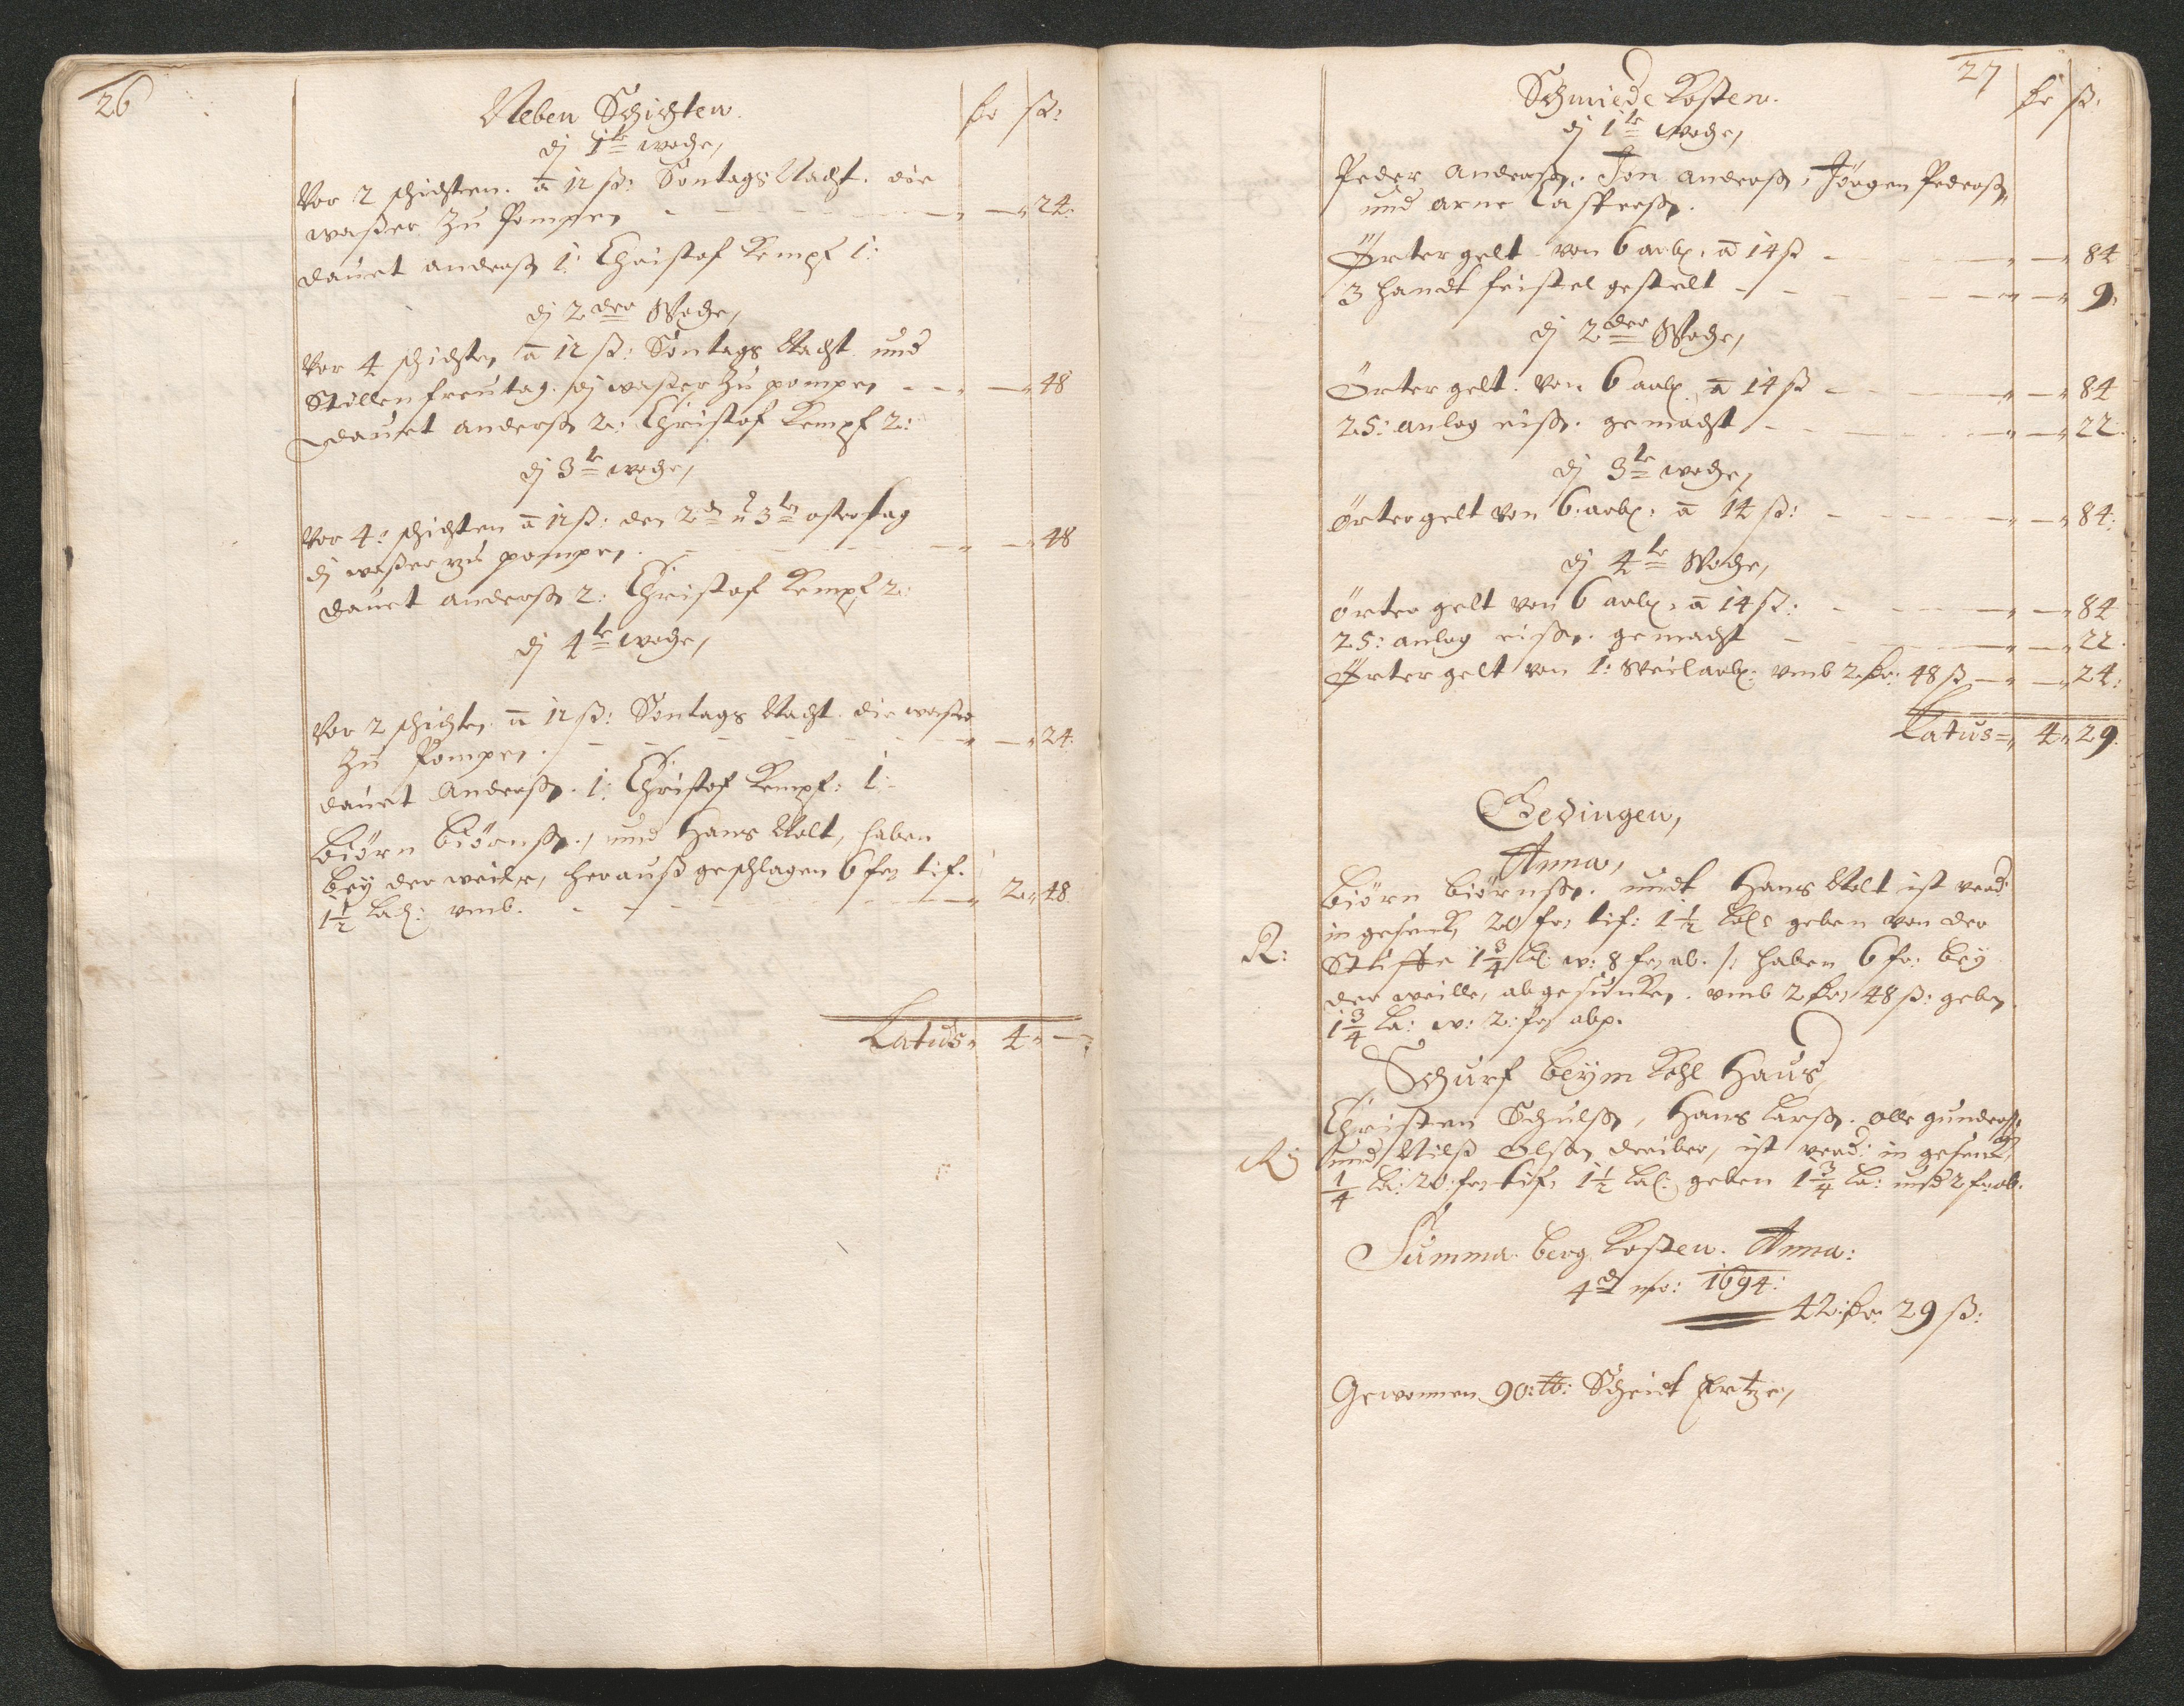 26
Neben Schichten.
dr ß:
dj 1te woche,
Vor 2 schichten. a 12 ß: Sontags Nacht. die
waßer Zu Pompen - - - 24:
Dauet anderß 1: Christof Kempf 1:
dj 2der Woche,
Vor 4 schichten a 12 ß: Sontags Nacht und
Stillen freutag. dj waßer Zu pompen - - - 48
Dauet anderß 2: Christof Kempf 2:
dj 3te woche,
Vor 4: schichten a 12 ß: den 2dn u 3tn ostertag
dj waßer zu pompen. - - - 48
Dauet anderß 2: Christof Kempf 2:
dj 4te woche,
Vor 2 schichten a 12 ß: Sontags Nacht die waßer
Zu Pompen. - - - 24:
Dauet Anderß. 1: Christof Kempf: 1:
Biörn Biörnß., und Hans Nolt, haben
bey der weile, herauß geschlagen 6 fr: tif.
1½ lach: vmb. - - - 2 " 48
Latus " 4 " —
27
Schmiede Kosten.
dr ß:
dj 1te woche,
Peder Anderß, Jon anderß, Jörgen Pederß,
und arne Casperß.
Örter gelt von 6 arb: a 14 ß - - - 84
3 handt feistel gestelt - - - 9:
dj 2der Woche,
Örter gelt. von 6 arb. a 14 ß - - - 84
25: anlag eiß. gemacht - - - 22
dj 3te woche,
Örtergelt von 6: arb: a 14 ß: - - - 84:
dj 4te Woche,
Örter gelt von 6 arb: a 14 ß: - - - 84
25: anlag eiß. gemacht - - - 22.
Örter gelt von 1: Weil arb: vmb 2 dr: 48 ß - - - 24:
Latus = " 4 " 29.
Gedingen,
Anna,
Biörn Biörnß. undt Hans Nolt ist verd:
in gesenk, 20 fr: tif: 1½ lach geben von der
R:
Stuffe 1¾ la: w: 8 fr: ab. /: haben 6 fr: bey
der weille, abgesunken. vmb 2 dr: 48 ß: geben
1¾ la: w: 2: fr: abp.
Schurf beym Kohl Haus,
Christen Schulß, Hans Larß. olle gunderß,
R:
und Nilß Olsen dreiber, ist verd: in gesenk,
¼ la: 20: fr: tif: 1½ lach: geben 1¾ la: und 2 fr: ab.
Summa berg Kosten. Anna:
4d mo: 1694:
42: dr: 29 ß:
Gewonnen 90: tt: Scheid Ertze,